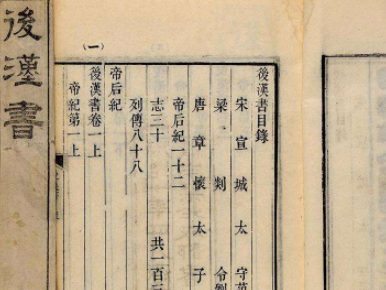 後漢書
後漢書目錄
宋宣城太守范
梁剡令劉
唐章懷太子
帝后紀一十二
志三十
列傳八十八
共一百三
帝后紀
後漢書卷一上
帝紀第一上
(一)